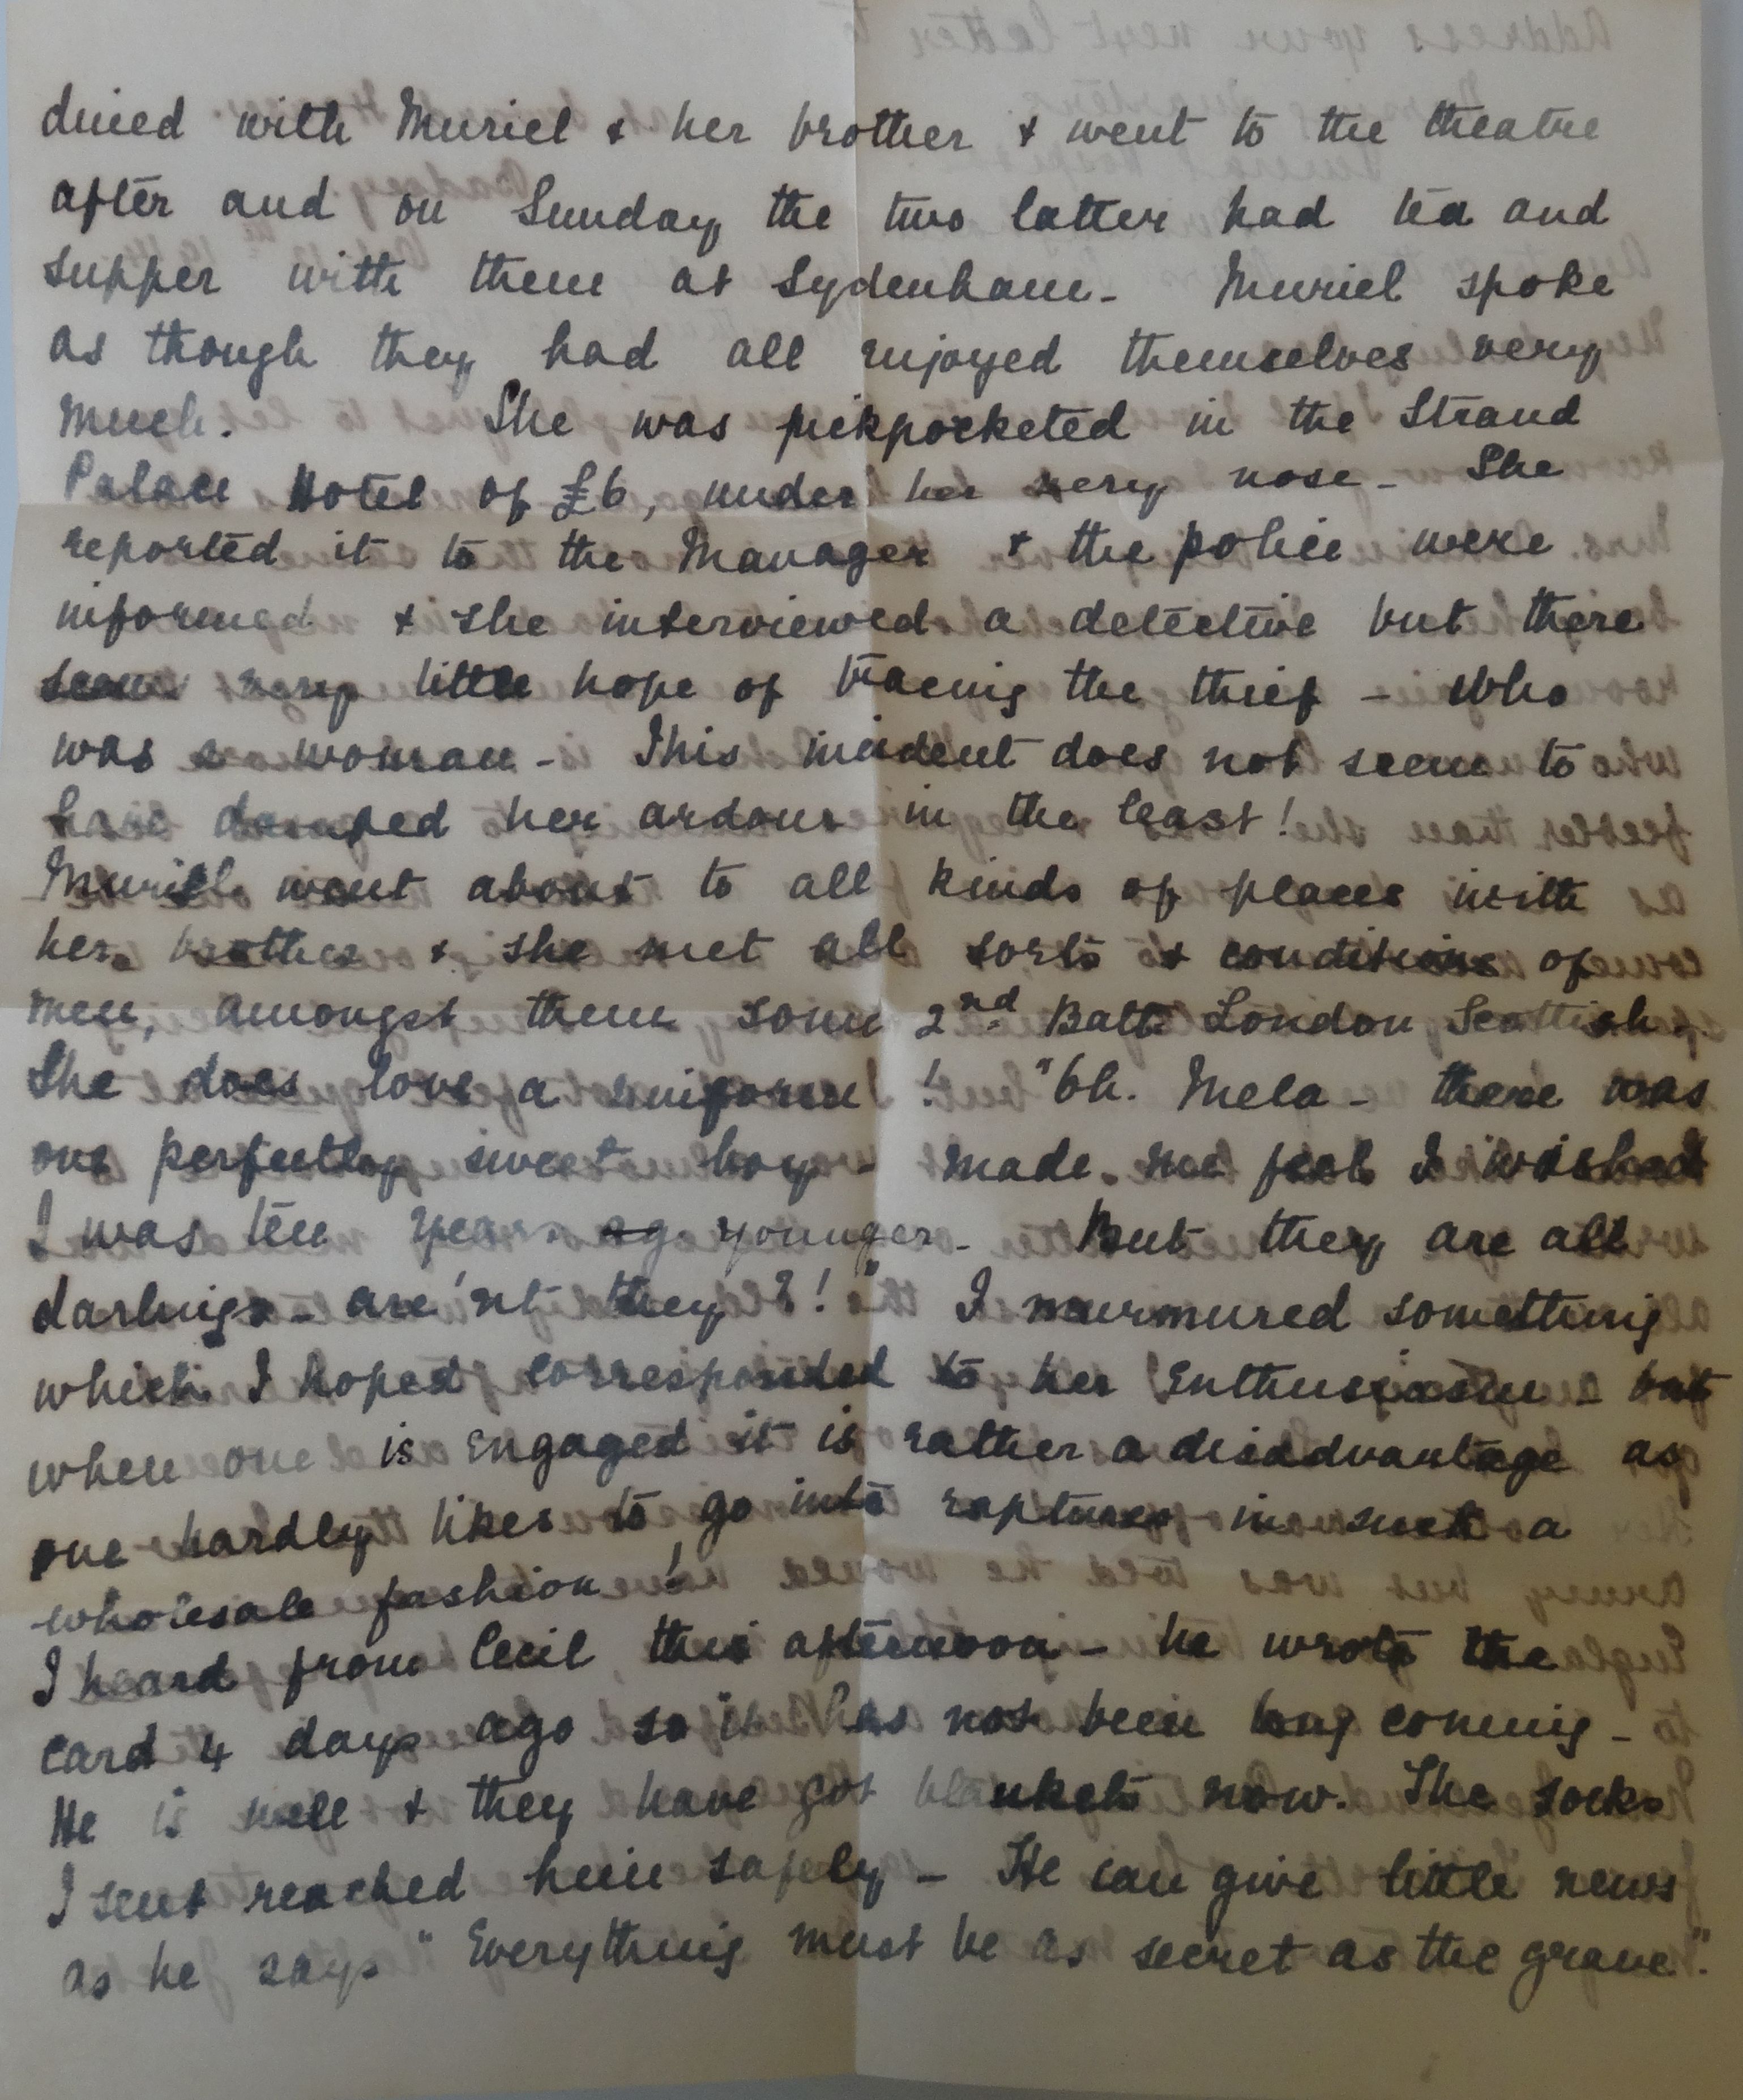 dined with Muriel & her brother & went to the theatre
after and on Sunday the two latter had tea and
supper with them at Sydenham - Muriel spoke
as though they had all enjoyed themselves very
much. She was pickpocketed in the Strand
Palace Hotel of £6, under her very nose - She
reported it to the Manager & the police were
informed & she interviewed a detective but there
seems very little hope of tracing the thief - who
was a woman - This incident does not seem to
have damped her ardour in the least!
Muriel went about to all kinds of places with
her brother & she met all sorts & conditions of
men, amongst them some 2nd Batt London Scottish.
She does love a uniform! "Oh. Mela - there was
one perfectly sweet boy - made me feel I wished
I was ten years ag younger - But they are all
darlings - are'nt they?!" I murmured something
which I hoped corresponded to her enthusiasm - but
when one is engaged it is rather a disadvantage as
one hardly likes to go into raptures in such a
wholesale fashion!
I heard from Cecil this afternoon - he wrote the
card 4 days ago so it has not been long coming -
He is well & they have got blankets now. The socks
I sent reached him safely - He can give little news
as he says "Everything must be as secret as the grave".